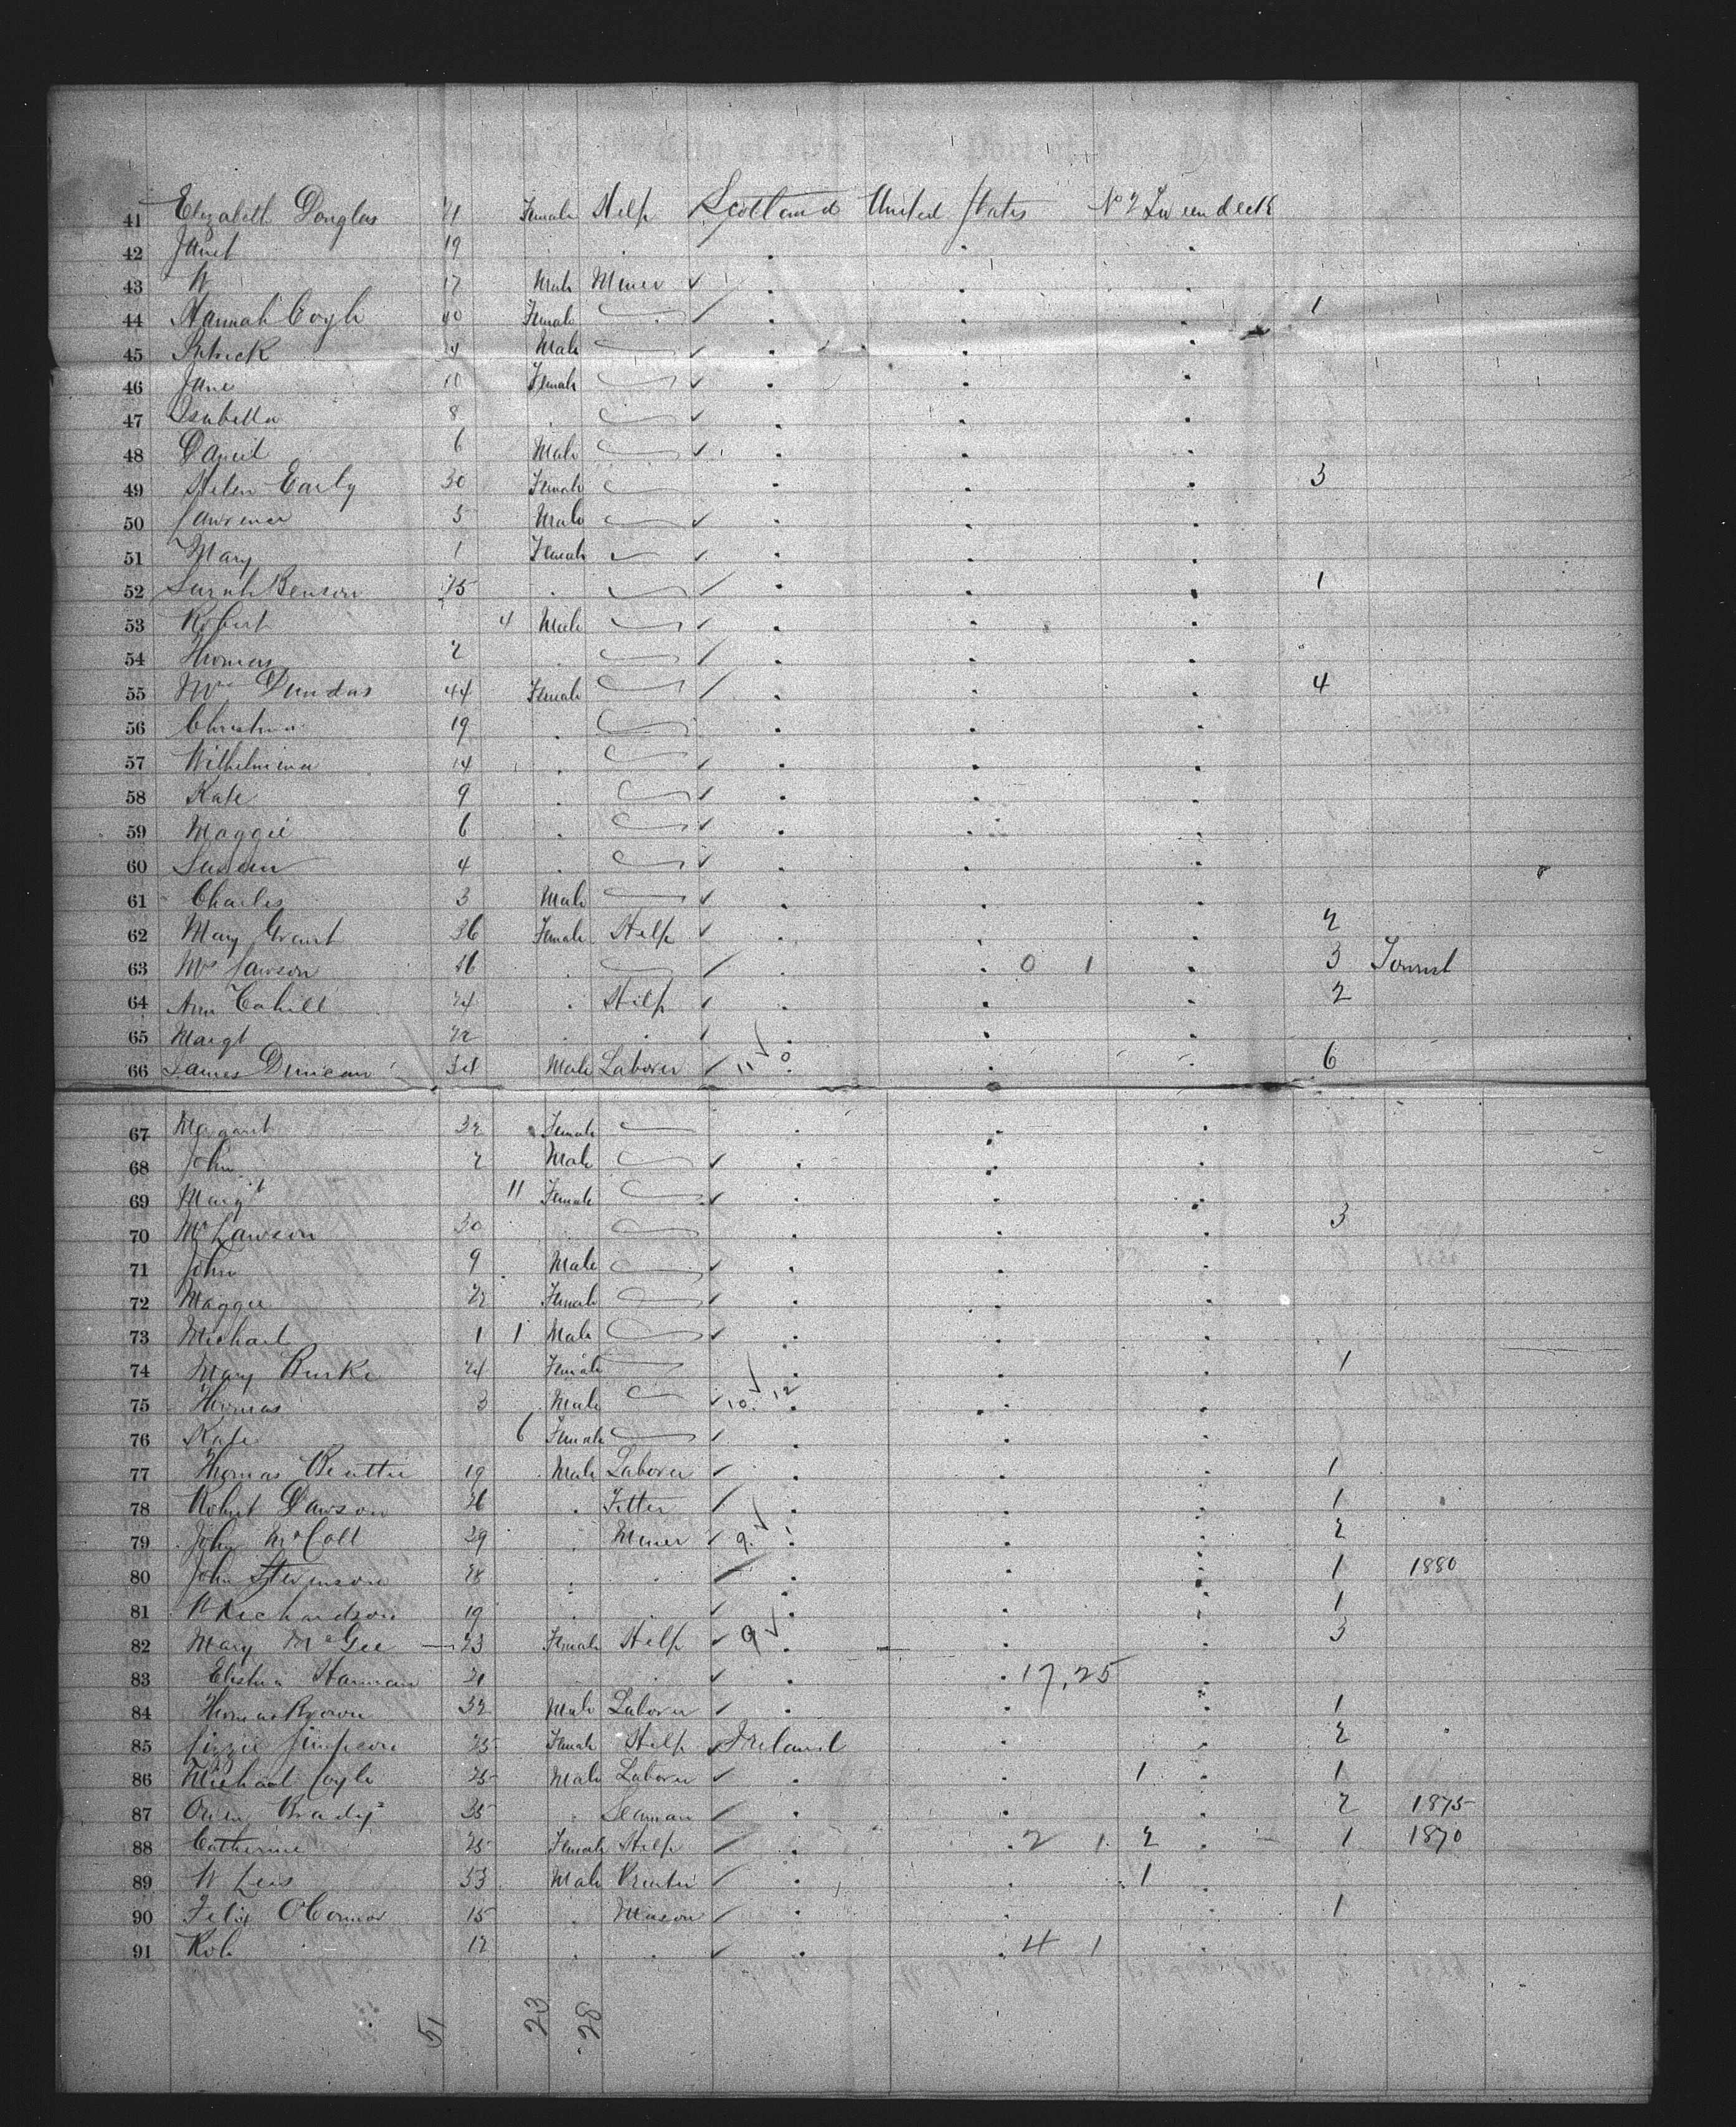 41 Elizabeth Douglas 21 Female Help Scotland United States No 2 Tween deck
42 Janet 19
43 W 17 Male Miner ✓
44 Hannah Coyle 40 Female 1
45 Patrick 14 Male ✓
46 Jane 10 Female ✓
47 Isabella 8 ✓
48 Daniel 6 Male ✓
49 Helen Early 30 Female 3
50 Lawrence 5 Male ✓
51 Mary 1 Female ✓
52 Sarah Benson 25 1
53 Robert 4 Male ✓
54 Thomas 2
55 Mrs Dundas 44 Female 4
56 Christina 19
57 Wilhelmina 14 ✓
58 Kate 9 ✓
59 Maggie 6 ✓
60 Susan 4 ✓
61 Charles 3 Male ✓
62 Mary Grant 36 Female Help ✓ 2
63 Mrs Lawson 0 1 3 Tourist
64 Ann Cahill 24 Help 2
65 Margt 22
66 James Duncan 34 Male Laborer 11 0 6
67 Margaret 32 Female
68 John 2 Male ✓
69 Margt 11 Female ✓
70 Mrs Lawson 30 3
71 John 9 Male ✓
72 Maggie Female ✓
73 Michael 1 1 Male ✓
74 Mary Burke 24 Female 1
75 Thomas 3 Male ✓ 10 12
76 Kate 6 Female
77 Thomas Beattie 19 Male Laborer ✓ 1
78 Robert Dawson 26 Fitter 1
79 John McColl 29 Miner 9 2
80 John Stevenson 28 1 1880
81 Richardson 19 ✓ 1
82 Mary McGee 23 Female Help ✓ 9 3
83 Hannan ✓ 17,25
84 Thomas Brown 32 Male Laborer ✓ 1
85 Lizzie Simpson 25 Female Help Ireland 2
86 Michael Coyle 25 Male Laborer ✓ 1 1
87 Owen Brady 35 Seaman 2 1875
88 Catherine 25 Female Help 2 1 2 1 1870
89 W Lees 33 Male Printer 1
90 Felix O'Connor 15 Mason 1
91 Rob. ✓ 4 1
51 23 28